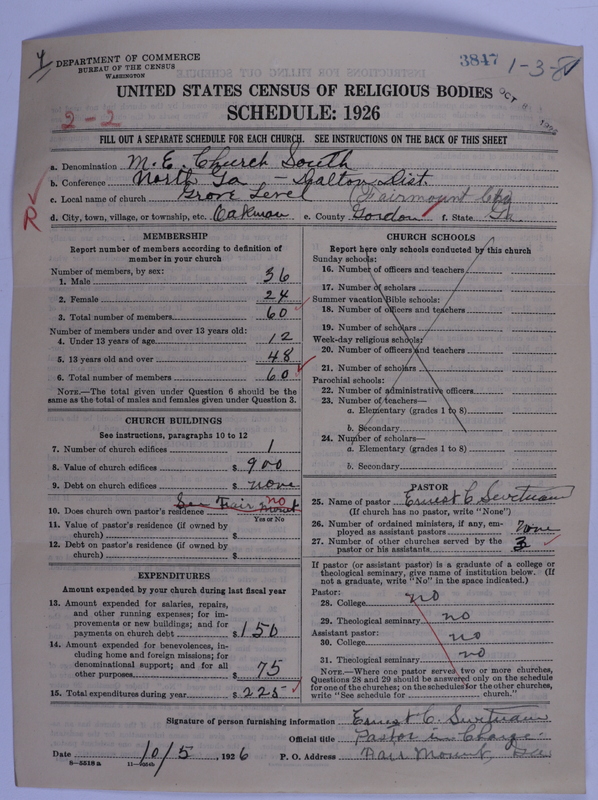 4
DEPARTMENT OF COMMERCE
BUREAU OF THE CENSUS
WASHINGTON
3847 1-3-
OCT 8 1926
UNITED STATES CENSUS OF RELIGIOUS BODIES
SCHEDULE: 1926
2-2
FILL OUT A SEPARATE SCHEDULE FOR EACH CHURCH. SEE INSTRUCTIONS ON THE BACK OF THIS SHEET
a. Denomination M. E. Church South
b. Conference North Ga - Dalton Dist.
c. Local name of church Grove Level (Fairmount Chg
R
d. City, town, village, or township, etc. Oakman e. County Gordon f. State Ga.
MEMBERSHIP
Report number of members according to definition of member in your church
Number of members, by sex:
1. Male 36
2. Female 24
3. Total number of members 60
Number of members under and over 13 years old:
4. Under 13 years of age 12
5. 13 years old and over 48
6. Total number of members 60
NOTE.—The total given under Question 6 should be the same as the total of males and females given under Question 3.
CHURCH BUILDINGS
See instructions, paragraphs 10 to 12
7. Number of church edifices 1
8. Value of church edifices $ 900
9. Debt on church edifices $ none
See Fair Mount no
10. Does church own pastor's residence
Yes or No
11. Value of pastor's residence (if owned by church) $
12. Debt on pastor's residence (if owned by church) $
EXPENDITURES
Amount expended by your church during last fiscal year
13. Amount expended for salaries, repairs, and other running expenses; for improvements or new buildings; and for payments on church debt $ 150
14. Amount expended for benevolences, including home and foreign missions; for denominational support; and for all other purposes $ 75
15. Total expenditures during year $ 225
CHURCH SCHOOLS
Report here only schools conducted by this church
Sunday schools:
16. Number of officers and teachers
17. Number of scholars
Summer vacation Bible schools:
18. Number of officers and teachers
19. Number of scholars
Week-day religious schools:
20. Number of officers and teachers
21. Number of scholars
Parochial schools:
22. Number of administrative officers
23. Number of teachers—
a. Elementary (grades 1 to 8)
b. Secondary
24. Number of scholars—
a. Elementary (grades 1 to 8)
b. Secondary
PASTOR
25. Name of pastor Ernest C.
(If church has no pastor, write "None")
26. Number of ordained ministers, if any, employed as assistant pastors None
27. Number of other churches served by the pastor or his assistants 3
If pastor (or assistant pastor) is a graduate of a college or theological seminary, give name of institution below. (If not a graduate, write "No" in the space indicated.)
Pastor:
28. College no
29. Theological seminary no
Assistant pastor:
30. College no
31. Theological seminary no
NOTE.—Where one pastor serves two or more churches, Questions 28 and 29 should be answered only on the schedule for one of the churches; on the schedules for the other churches, write "See schedule for church."
Signature of person furnishing information Ernest C.
Official title Pastor in Charge
Date 10/5, 1926 P. O. Address Fair Mount, Ga
8-5518a